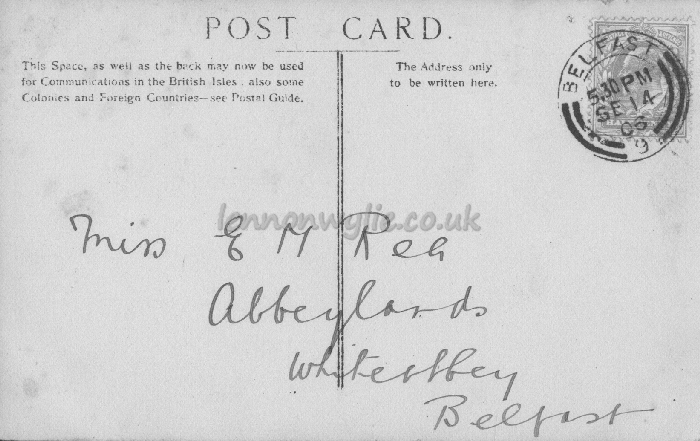 POST CARD.
This Space, as well as the back may now be used
for Communications in the British Isles, also some
Colonies and Foreign Countries—see Postal Guide.
The Address only
to be written here.
BELFAST
5.30 PM
SE 14
06
9
lennonwylie.co.uk
Miss E M Rea
Abbeylands
Whiteabbey
Belfast